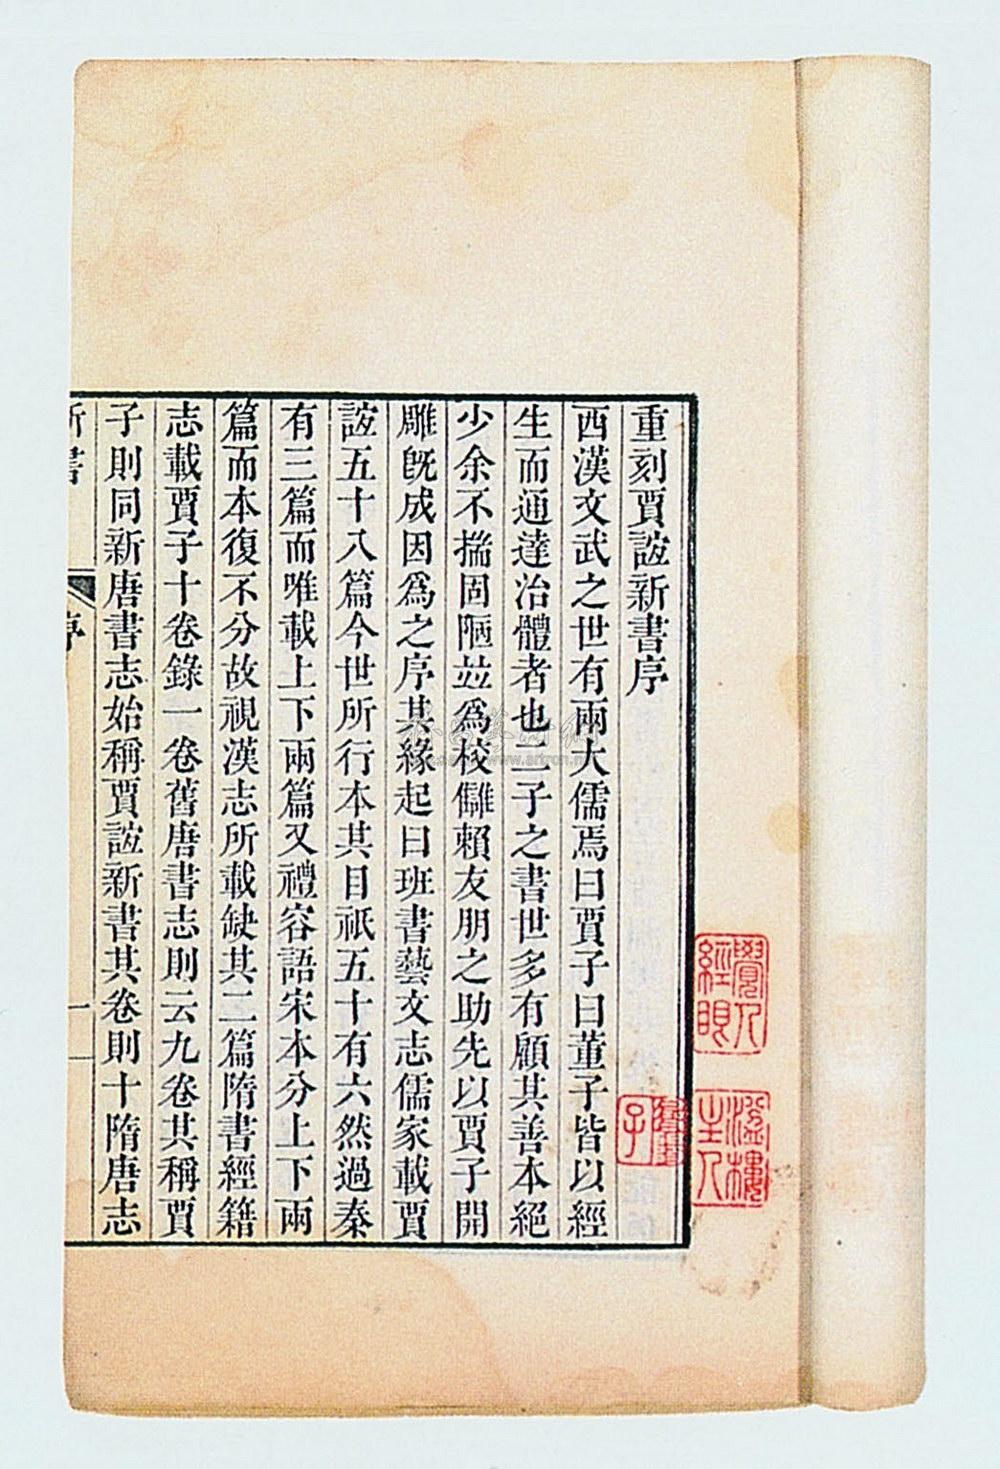 重刻賈誼新書序
西漢文武之世有兩大儒焉曰賈子曰董子皆以經
生而通達冶體者也二子之書世多有顧其善本絕
少余不揣固陋竝爲校讎賴友朋之助先以賈子開
雕旣成因爲之序其緣起曰班書藝文志儒家載賈
誼五十八篇今世所行本其目祇五十有六然過秦
有三篇而唯載上下兩篇又禮容語宋本分上下兩
篇而本復不分故視漢志所載缺其二篇隋書經籍
志載賈子十卷錄一卷舊唐書志則云九卷其稱賈
子則同新唐書志始稱賈誼新書其卷則十隋唐志
新書
序
一
覺人
經眼
澀樓
主人
www.artron.net